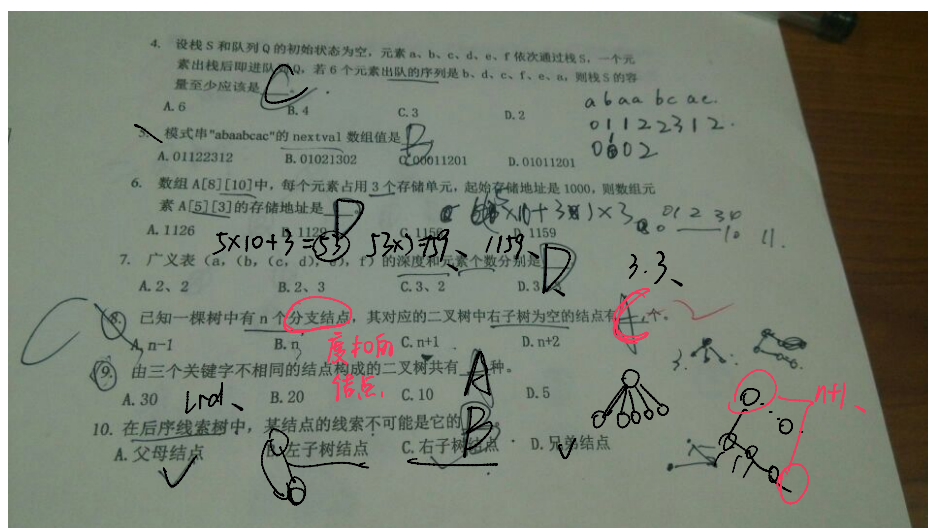 4. 设栈 S 和队列 Q 的初始状态为空，元素 a、b、c、d、e、f 依次通过栈 S，一个元
素出栈后即进队 Q，若 6 个元素出队的序列是 b、d、c、f、e、a，则栈 S 的容
量至少应该是 C
A. 6 B. 4 C. 3 D. 2
a b a a b c a c
5. 模式串"abaabcac"的 nextval 数组值是 B
0 1 1 2 2 3 1 2
A. 01122312 B. 01021302 C. 00011201 D. 01011201
6. 数组 A[8][10]中，每个元素占用 3 个存储单元，起始存储地址是 1000，则数组元
素 A[5][3]的存储地址是 D
A. 1126 D. 1159
5×10+3=53 1159、
7. 广义表（a，(b，(c，d)，e)，f）的深度和元素个数分别是 D
3.3、
A. 2、2 B. 2、3 C. 3、2 D. 3
8. 已知一棵树中有 n 个分支结点，其对应的二叉树中右子树为空的结点有 C 个。
A. n-1 B. n C. n+1 D. n+2
结点
9. 由三个关键字不相同的结点构成的二叉树共有 A 种。
A. 30 B. 20 C. 10 D. 5
lrd、
n+1、
10. 在后序线索树中，某结点的线索不可能是它的 B
A. 父母结点 B. 左子树结点 C. 右子树结点 D. 兄弟结点